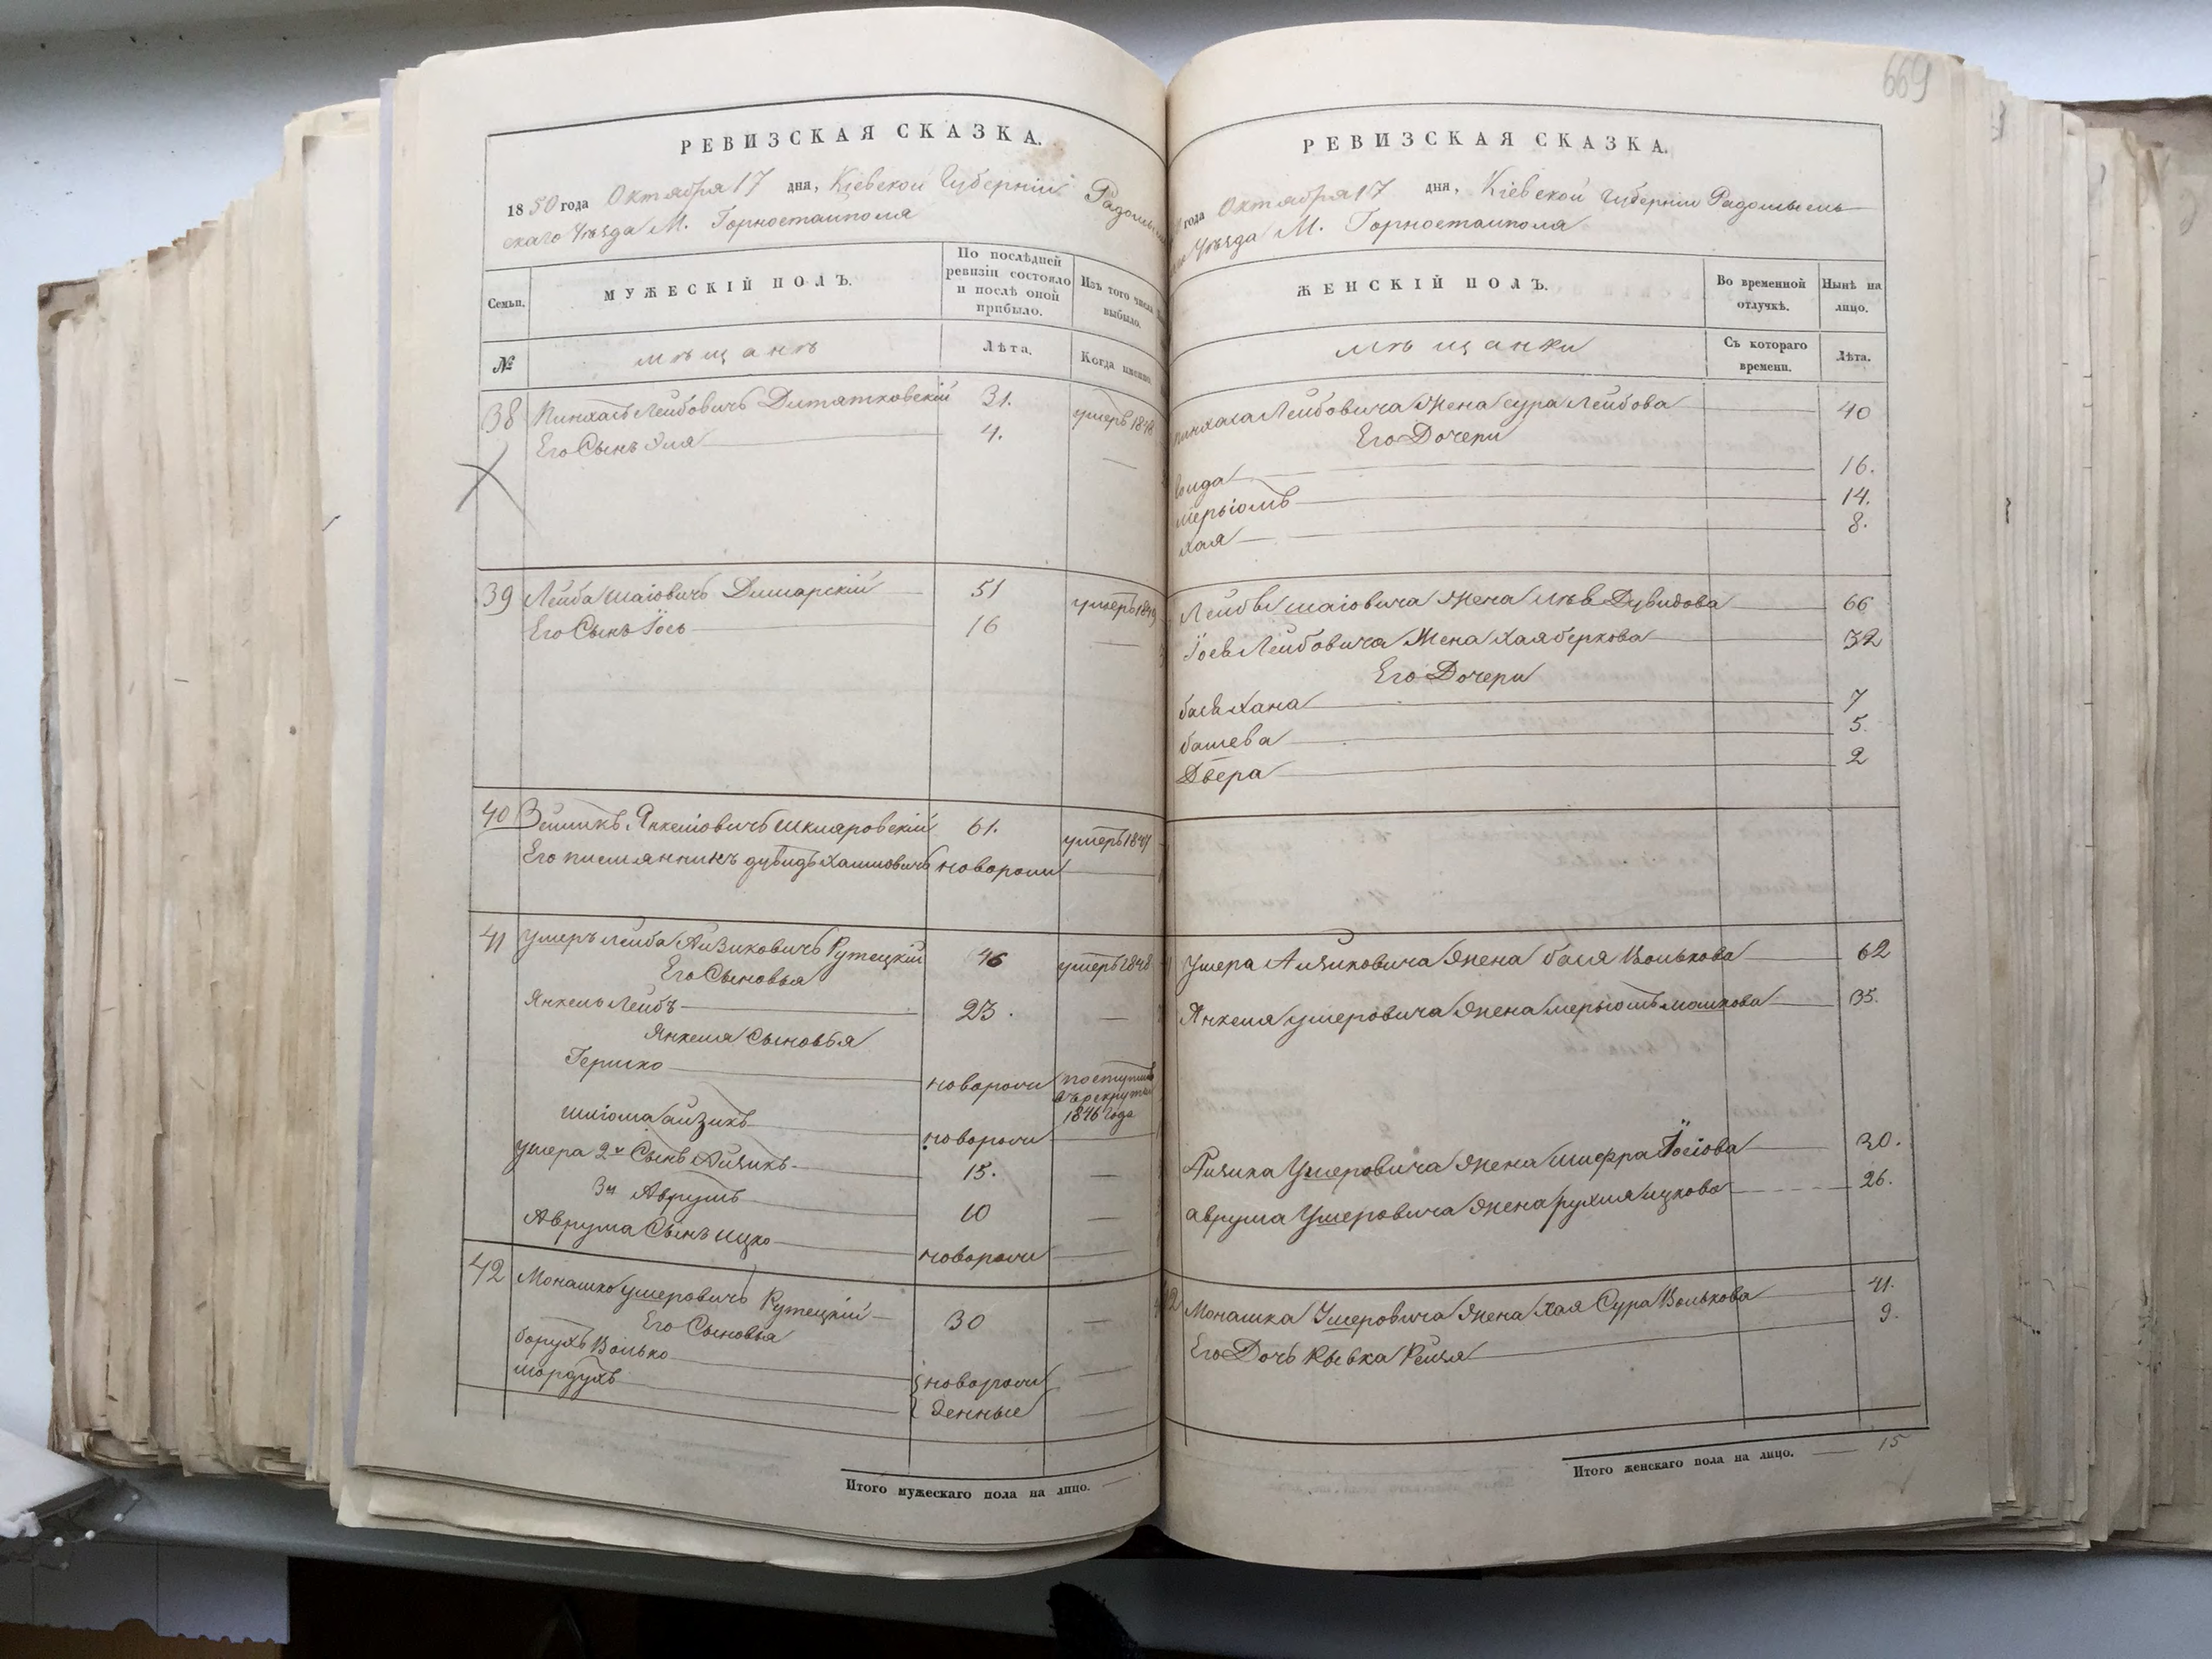 669
РЕВИЗСКАЯ СКАЗКА.
1850 года Октября 17 дня, Кіевской Губерніи Радомысль
скаго Уѣзда М. Горностайполя
Семьи.
МУЖЕСКІЙ ПОЛЪ.
По послѣдней ревизіи состояло и послѣ оной прибыло.
Изъ того числа выбыло.
№
мѣщанъ
Лѣта.
Когда именно
38 Пинхасъ Лейбовичъ Дитятковскій 31. умеръ 1848
Его Сынъ Эля 4.
39 Лейба Шаіовичъ Димарскій 51 умеръ 1849
Его Сынъ Іось 16
40 Зейликъ Янкеліовичъ Шкляровскій 61. умеръ 1847
Его племянникъ Дувидъ Хаимовичъ новорож
41 Умеръ Лейба Айзиковичъ Рутецкій 46 умеръ 1848
Его Сыновья
Янкель Лейбъ 23.
Янкеля Сыновья
Гершко новорож поступилъ
въ рекруты
1846 года
Шліома Айзикъ новорож
Умера 2й Сынъ Айзикъ 15.
3й Аврумъ 10
Аврума Сынъ Ицко новорож
42 Монашко Умеровичъ Рутецкій 30
Его Сыновья
Борухъ Волько новорож
Мордухъ денные
Итого мужескаго пола на лицо.
РЕВИЗСКАЯ СКАЗКА.
года Октября 17 дня, Кіевской Губерніи Радомысль
Уѣзда М. Горностайполя
ЖЕНСКІЙ ПОЛЪ.
Во временной отлучкѣ.
Нынѣ на лицо.
мѣщанки
Съ котораго времени.
Лѣта.
Пинхаса Лейбовича Жена Сура Лейбова 40
Его Дочери
16.
Меріомъ 14.
Хая 8.
Лейбы Шаіовича Жена Дувидова 66
Іося Лейбовича Жена Хая Беркова 32
Его Дочери
Бася Хана 7
Башева 5.
Двера 2
Умера Айзиковича Жена Бася Волькова 62
Янкеля Умеровича Жена Меріомъ Мошкова 35.
Айзика Умеровича Жена Шифра Іосіова 30.
Аврума Умеровича Жена Рухля Ицкова 26.
42 Монашка Умеровича Жена Хая Сура Волькова 41.
Его Дочь Рывка Рейзя 9.
Итого женскаго пола на лицо. 15